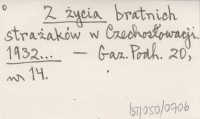 Z życia bratnich
strażaków w Czechosłowacji.
1932... — Gaz. Podh. 20,
nr 14.
BJ/050/0706